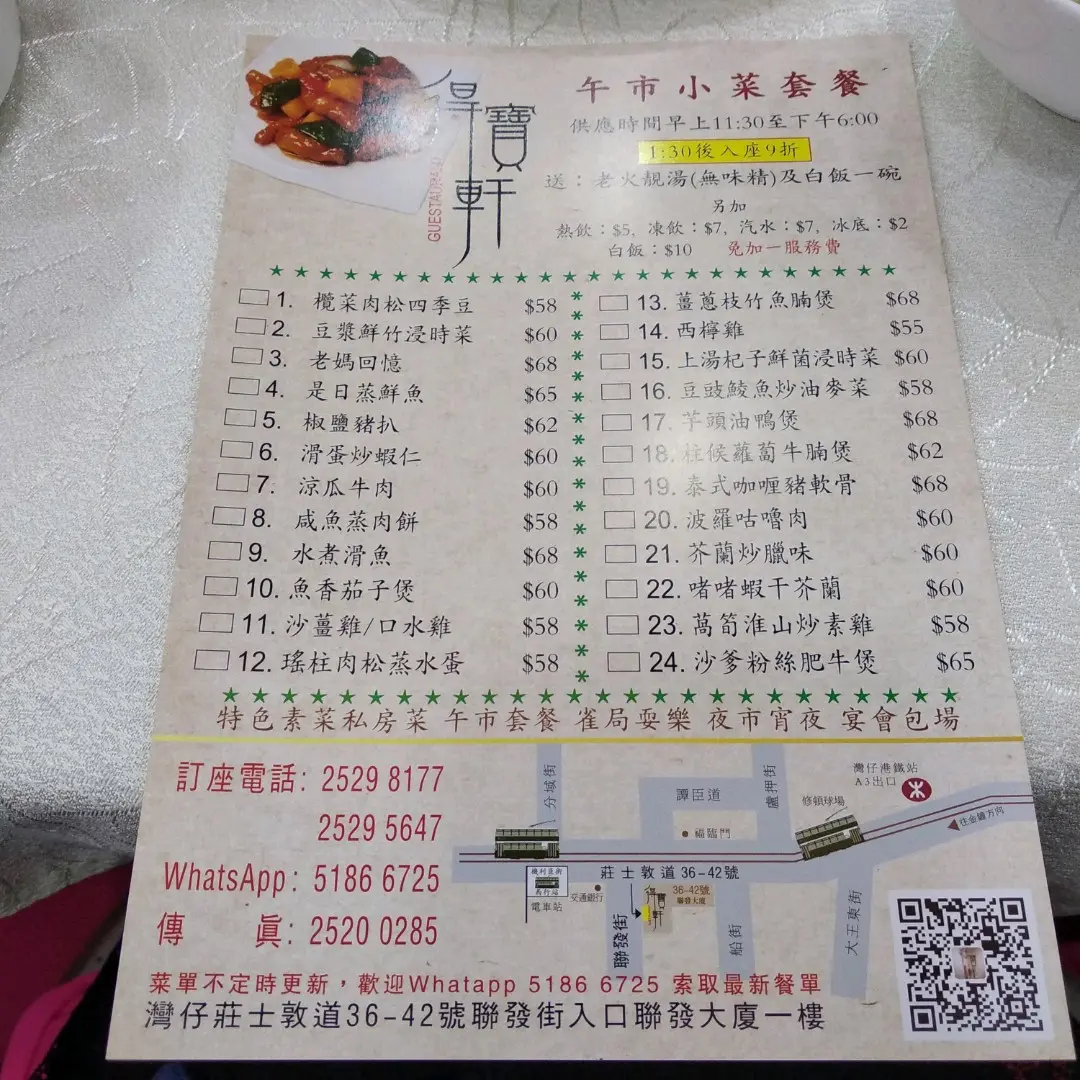 得寶軒
GUESTAURANT
午市小菜套餐
供應時間早上11:30至下午6:00
1:30後入座9折
送：老火靚湯(無味精)及白飯一碗
另加
熱飲：$5, 凍飲：$7, 汽水：$7, 冰底：$2
白飯：$10 免加一服務費
1. 欖菜肉松四季豆 $58
2. 豆漿鮮竹浸時菜 $60
3. 老媽回憶 $68
4. 是日蒸鮮魚 $65
5. 椒鹽豬扒 $62
6. 滑蛋炒蝦仁 $60
7. 涼瓜牛肉 $60
8. 咸魚蒸肉餅 $58
9. 水煮滑魚 $68
10. 魚香茄子煲 $60
11. 沙薑雞/口水雞 $58
12. 瑤柱肉松蒸水蛋 $58
13. 薑蔥枝竹魚腩煲 $68
14. 西檸雞 $55
15. 上湯杞子鮮菌浸時菜 $60
16. 豆豉鯪魚炒油麥菜 $58
17. 芋頭油鴨煲 $68
18. 柱候蘿蔔牛腩煲 $62
19. 泰式咖喱豬軟骨 $68
20. 波羅咕嚕肉 $60
21. 芥蘭炒臘味 $60
22. 啫啫蝦干芥蘭 $60
23. 萵筍淮山炒素雞 $58
24. 沙爹粉絲肥牛煲 $65
特色素菜私房菜 午市套餐 雀局耍樂 夜市宵夜 宴會包場
訂座電話: 2529 8177
2529 5647
WhatsApp: 5186 6725
傳 眞: 2520 0285
分域街
譚臣道
盧押道
灣仔港鐵站
A3出口
修頓球場
往金鐘方向
福臨門
莊士敦道 36-42號
機利臣街
電車站
交通銀行
得寶軒
36-42號
聯發大廈
聯發街
船街
大王東街
菜單不定時更新，歡迎Whatapp 5186 6725 索取最新餐單
灣仔莊士敦道36-42號聯發街入口聯發大廈一樓